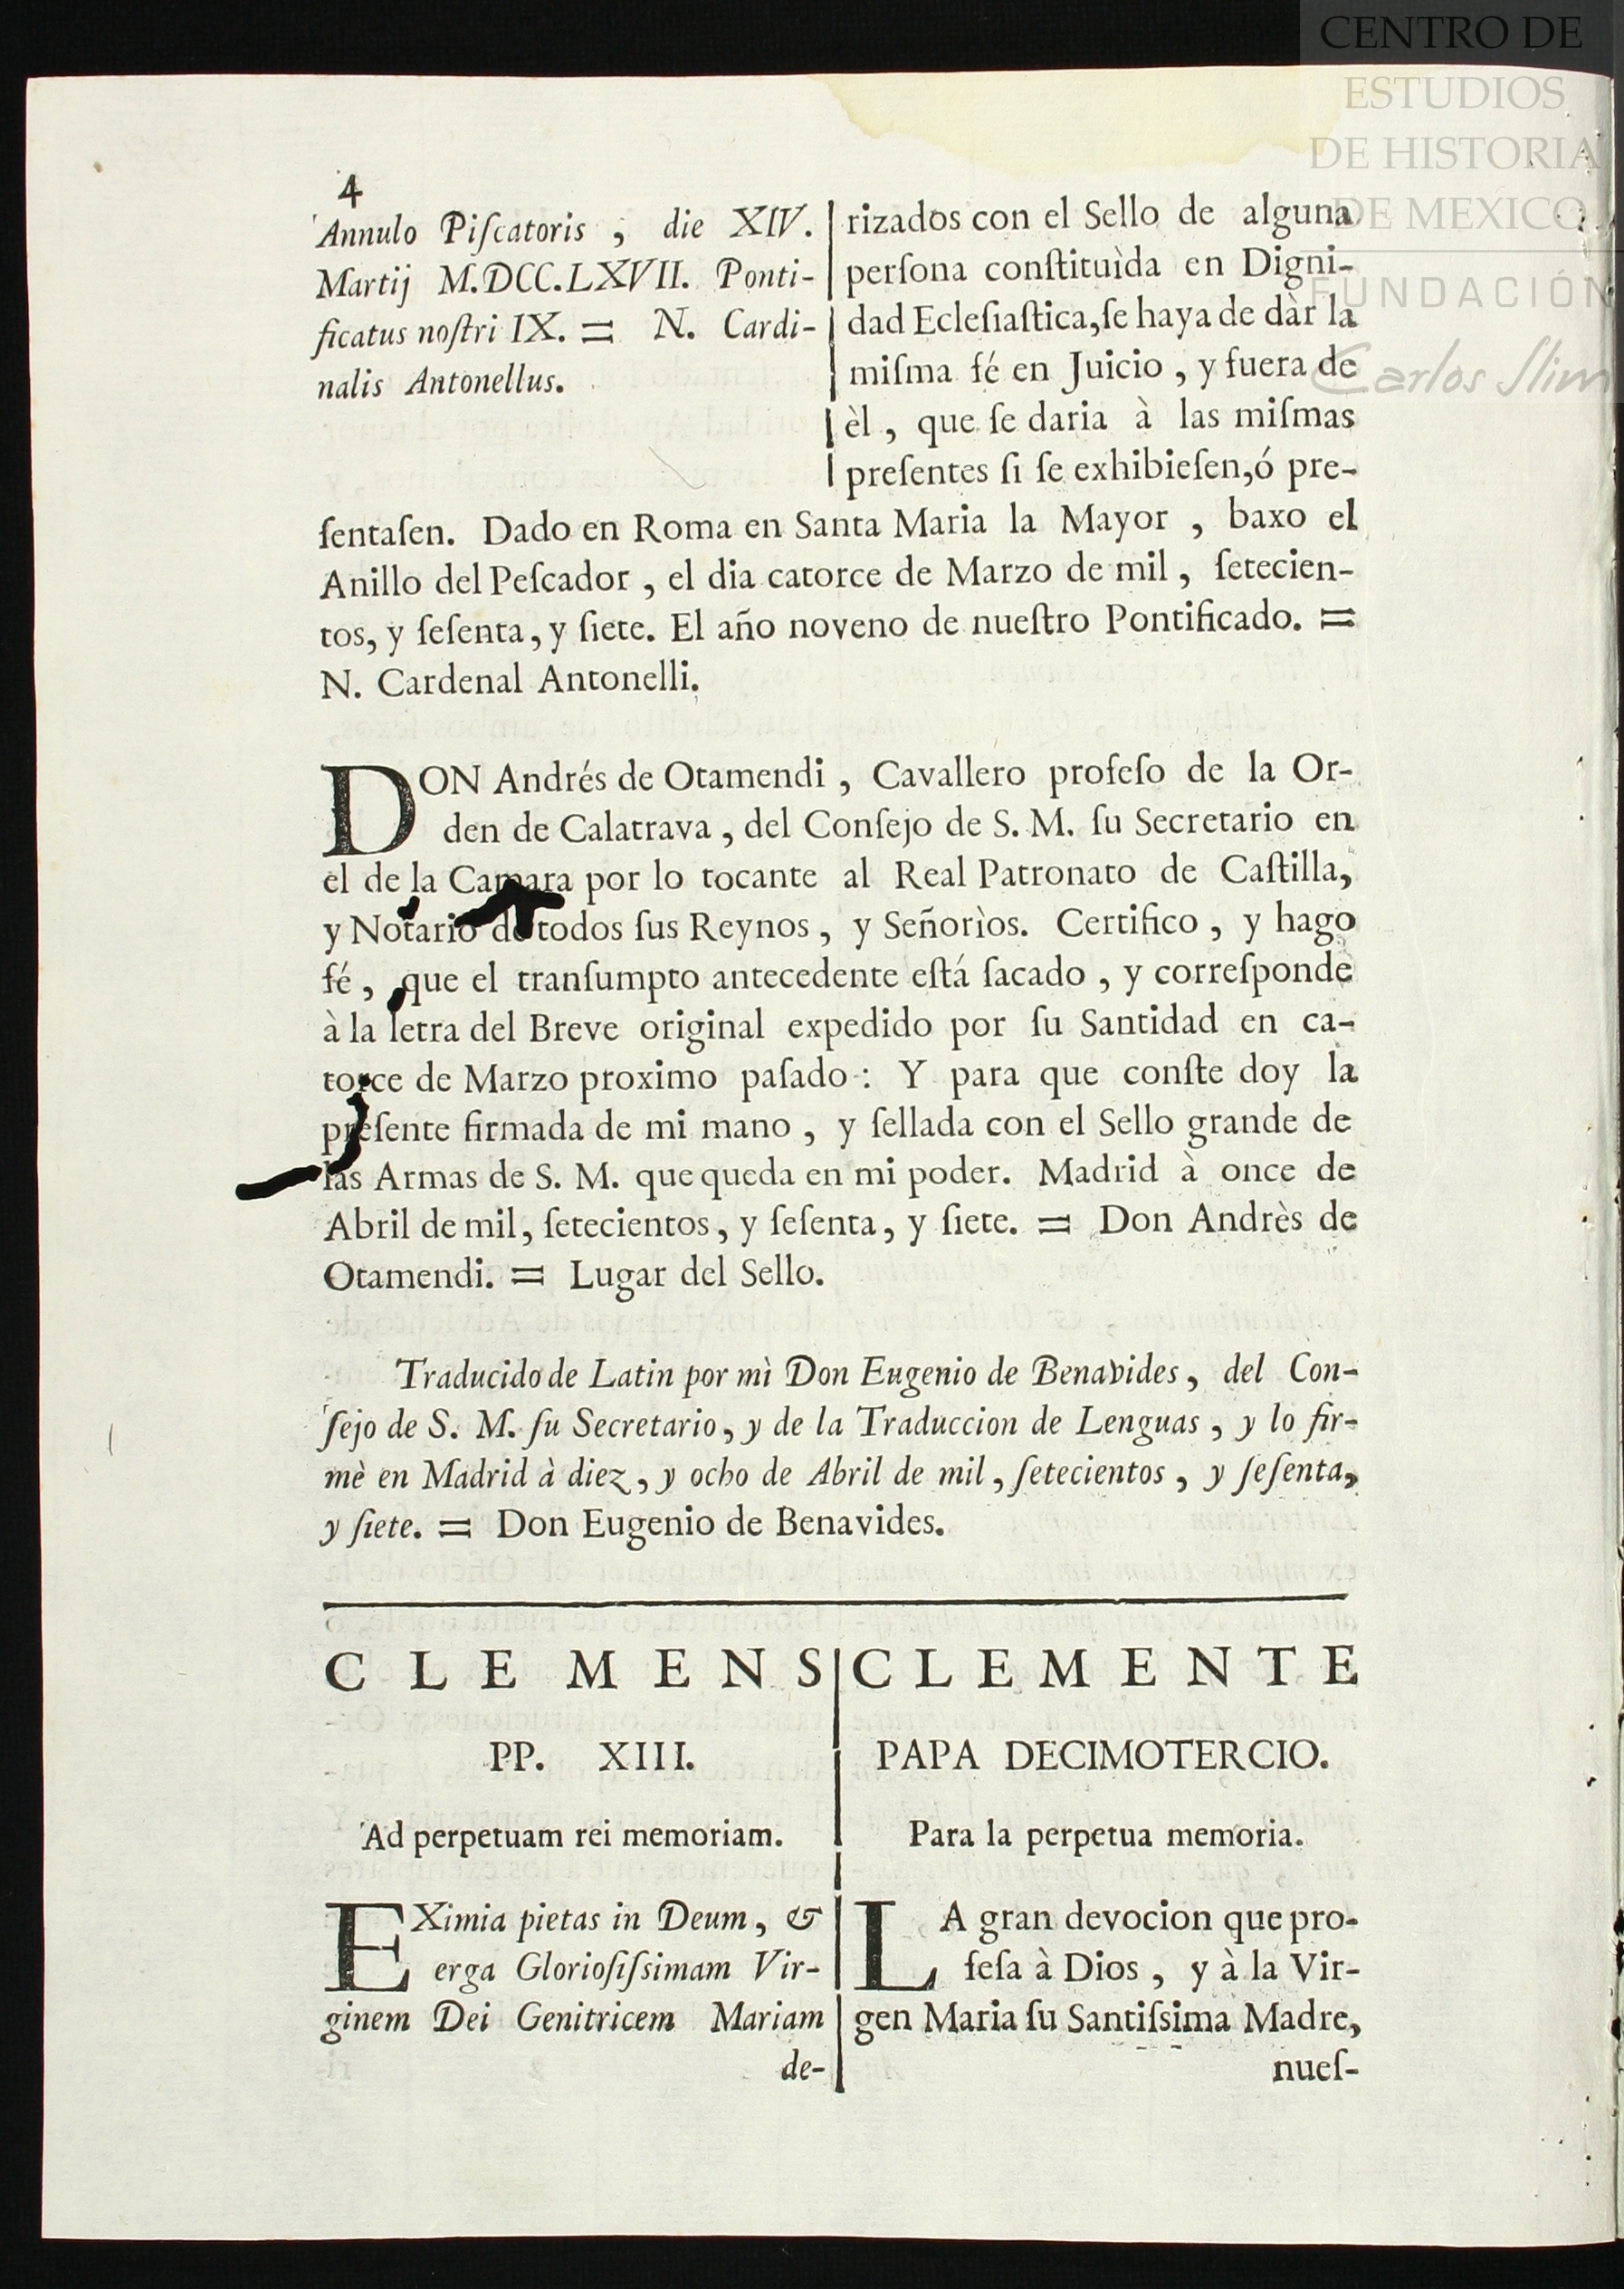 CENTRO DE
ESTUDIOS
DE HISTORIA
DE MEXICO
FUNDACIÓN
Carlos Slim
4
Annulo Piſcatoris , die XIV.
Martij M.DCC.LXVII. Ponti-
ficatus noſtri IX. = N. Cardi-
nalis Antonellus.
rizados con el Sello de alguna
perſona conſtituìda en Digni-
dad Ecleſiaſtica, ſe haya de dàr la
miſma fé en Juicio , y fuera de
èl , que ſe daria à las miſmas
preſentes ſi ſe exhibieſen, ó pre-
ſentaſen. Dado en Roma en Santa Maria la Mayor , baxo el
Anillo del Peſcador , el dia catorce de Marzo de mil , ſetecien-
tos, y ſeſenta, y ſiete. El año noveno de nueſtro Pontificado. =
N. Cardenal Antonelli.
DON Andrés de Otamendi , Cavallero profeſo de la Or-
den de Calatrava , del Conſejo de S. M. ſu Secretario en
el de la Camara por lo tocante al Real Patronato de Caſtilla,
y Notario de todos ſus Reynos , y Señorìos. Certifico , y hago
fé , que el tranſumpto antecedente eſtá ſacado , y correſponde
à la letra del Breve original expedido por ſu Santidad en ca-
torce de Marzo proximo paſado : Y para que conſte doy la
preſente firmada de mi mano , y ſellada con el Sello grande de
las Armas de S. M. que queda en mi poder. Madrid à once de
Abril de mil, ſetecientos, y ſeſenta, y ſiete. = Don Andrès de
Otamendi. = Lugar del Sello.
Traducido de Latin por mì Don Eugenio de Benavides, del Con-
ſejo de S. M. ſu Secretario, y de la Traduccion de Lenguas , y lo fir-
mè en Madrid à diez , y ocho de Abril de mil , ſetecientos , y ſeſenta,
y ſiete. = Don Eugenio de Benavides.
CLEMENS
PP. XIII.
Ad perpetuam rei memoriam.
EXimia pietas in Deum, &
erga Glorioſiſsimam Vir-
ginem Dei Genitricem Mariam
de-
CLEMENTE
PAPA DECIMOTERCIO.
Para la perpetua memoria.
LA gran devocion que pro-
feſa à Dios , y à la Vir-
gen Maria ſu Santiſsima Madre,
nueſ-